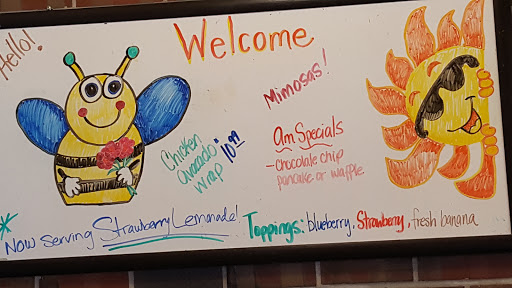 Hello!
Welcome
Mimosas!
Chicken
avocado
wrap
10.99
Am Specials
- chocolate chip
pancake or waffle.
* Now Serving Strawberry Lemonade!
Toppings: blueberry, Strawberry, fresh banana